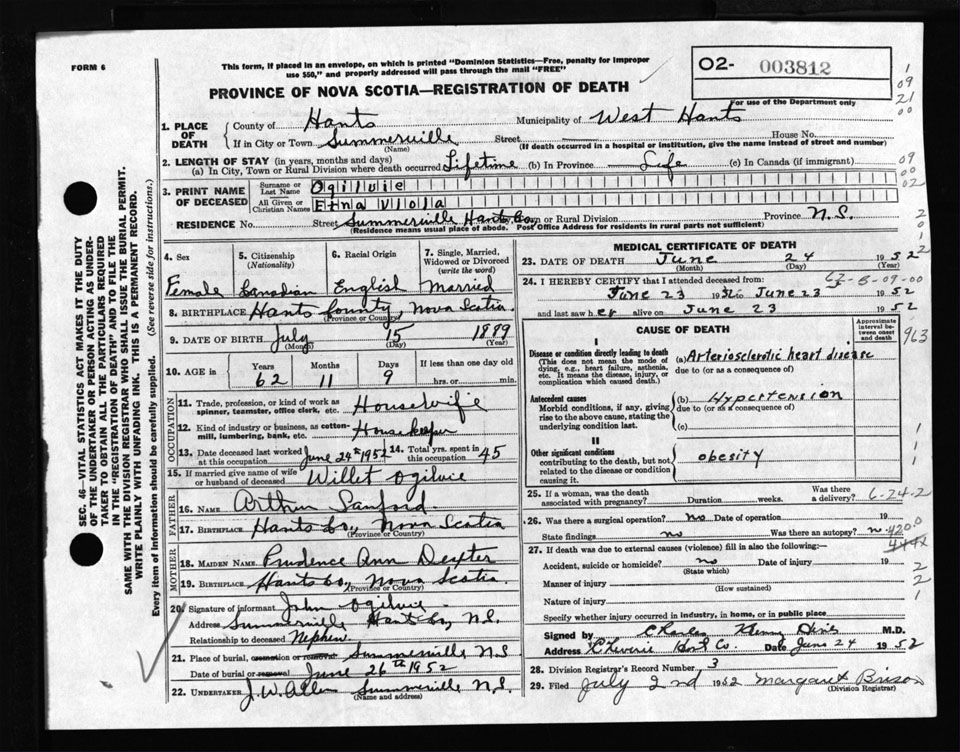 FORM 6
This form, if placed in an envelope, on which is printed "Dominion Statistics—Free, penalty for improper
use $50," and properly addressed will pass through the mail "FREE"
PROVINCE OF NOVA SCOTIA—REGISTRATION OF DEATH
O2- 003812
For use of the Department only
1
09
21
00
1. PLACE OF DEATH
County of Hants Municipality of West Hants
If in City or Town Summerville Street House No.
(Name) (If death occurred in a hospital or institution, give the name instead of street and number)
2. LENGTH OF STAY (in years, months and days)
(a) In City, Town or Rural Division where death occurred Lifetime (b) In Province Life (c) In Canada (if immigrant)
09
00
02
3. PRINT NAME OF DECEASED
Surname or Last Name Ogilvie
All Given or Christian Names Etna Viola
RESIDENCE No. Street Summerville Hants Co. or Rural Division Province N.S.
(Residence means usual place of abode. Post Office Address for residents in rural parts not sufficient)
4. Sex Female
5. Citizenship (Nationality) Canadian
6. Racial Origin English
7. Single, Married, Widowed or Divorced (write the word) Married
8. BIRTHPLACE Hants County, Nova Scotia
(Province or Country)
9. DATE OF BIRTH July 15 1889
(Month) (Day) (Year)
10. AGE in Years 62 Months 11 Days 9 If less than one day old hrs. or min.
OCCUPATION
11. Trade, profession, or kind of work as spinner, teamster, office clerk, etc. Housewife
12. Kind of industry or business, as cotton-mill, lumbering, bank, etc. Housekeeper
13. Date deceased last worked at this occupation June 24th 1952 14. Total yrs. spent in this occupation 45
15. If married give name of wife or husband of deceased Willet Ogilvie
FATHER
16. NAME Arthur Sanford
17. BIRTHPLACE Hants Co, Nova Scotia
(Province or Country)
MOTHER
18. MAIDEN NAME Prudence Ann Dexter
19. BIRTHPLACE Hants Co, Nova Scotia.
(Province or Country)
20. Signature of informant John Ogilvie
Address Summerville Hants Co, N.S.
Relationship to deceased Nephew
21. Place of burial, cremation or removal Summerville N.S
Date of burial or removal June 26th 1952
22. UNDERTAKER J. W. Allen Summerville N.S.
(Name and address)
MEDICAL CERTIFICATE OF DEATH
23. DATE OF DEATH June 24 1952
(Month) (Day) (Year)
24. I HEREBY CERTIFY that I attended deceased from:
June 23 1952 to June 23 1952
and last saw her alive on June 23 1952
CAUSE OF DEATH
Approximate interval between onset and death
963
I
Disease or condition directly leading to death
(This does not mean the mode of dying, e.g., heart failure, asthenia, etc. It means the disease, injury, or complication which caused death.)
(a) Arteriosclerotic heart disease
due to (or as a consequence of)
Antecedent causes
Morbid conditions, if any, giving rise to the above cause, stating the underlying condition last.
(b) Hypertension
due to (or as a consequence of)
(c)
II
Other significant conditions
contributing to the death, but not related to the disease or condition causing it.
obesity
25. If a woman, was the death associated with pregnancy? Duration weeks. Was there a delivery? 6-24-2
26. Was there a surgical operation? no Date of operation 19
State findings no Was there an autopsy? no
4200
27. If death was due to external causes (violence) fill in also the following:—
Accident, suicide or homicide? no Date of injury 19
(State which)
Manner of injury
(How sustained)
Nature of injury
Specify whether injury occurred in industry, in home, or in public place
Signed by Charles Henry M.D.
Address Cheverie Hants Co. Date June 24 1952
28. Division Registrar's Record Number 3
29. Filed July 2nd 1952 Margaret Brison
(Division Registrar)
SEC. 46—VITAL STATISTICS ACT MAKES IT THE DUTY
OF THE UNDERTAKER OR PERSON ACTING AS UNDER-
TAKER TO OBTAIN ALL THE PARTICULARS REQUIRED
IN THE "REGISTRATION OF DEATH" AND TO FILE THE
SAME WITH THE DIVISION REGISTRAR WHO SHALL ISSUE THE BURIAL PERMIT.
WRITE PLAINLY WITH UNFADING INK. THIS IS A PERMANENT RECORD.
Every item of information should be carefully supplied. (See reverse side for instructions.)